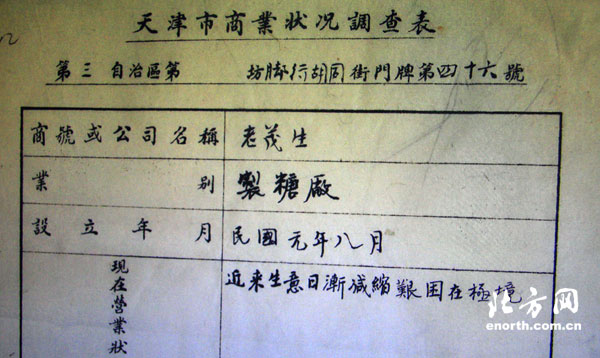 天津市商業狀况調查表
第三 自治區第 坊脚行胡同街門牌第四十六號
商號或公司名稱 老茂生
業別 製糖廠
設立年月 民國元年八月
現在營業狀 近来生意日漸减縮艱困在極境
北方网
enorth.com.cn